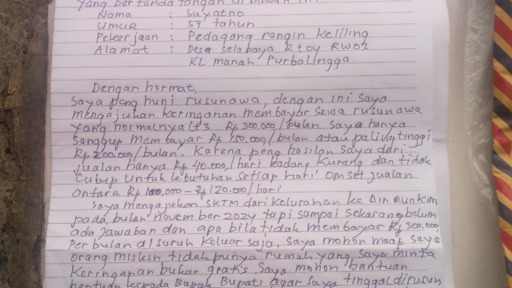 yang bertanda tangan di bawah ini
Nama : Suyatno
Umur : 53 tahun
Pekerjaan : Pedagong rangin keliling
Alamat : Desa selabaya Rtoy RW03
KL manah Purbalingga.
Dengan hormat,
Saya peng huni rusunawa, dengan ini saya
mengajukan keringanan membayar sewa rusunawa
yang hormalnya Lt3 Rp 300,000/bulan saya hanya
sanggup membayar Rp 150,000/bulan atau paling tinggi
Rp 200.000/bulan. Kalena peng hasilan saya dari
Jualan hanya Rp 40.000/hari kadang kurang dan tidak
cubup untuk ke butuhan setiap hari omset jualan
antara Rp 100,000 - Rp 120.000/hari
Saya mengajukan SKTM dari kelurahan ke Din Runkim
pada bulan november 2024 tapi sampai sekarang belum
ada jawaban dan apa bila tidak membayar Rp 300,000
Per bulan di suruh keluar saja, saya mohon maaf saya
orang miskin tidak punya rumah yang saya minta
keringanan bukan gratis. Saya mohon bantuan
bantuan kepada Bapak Bupati agar saya tinggal dirusun